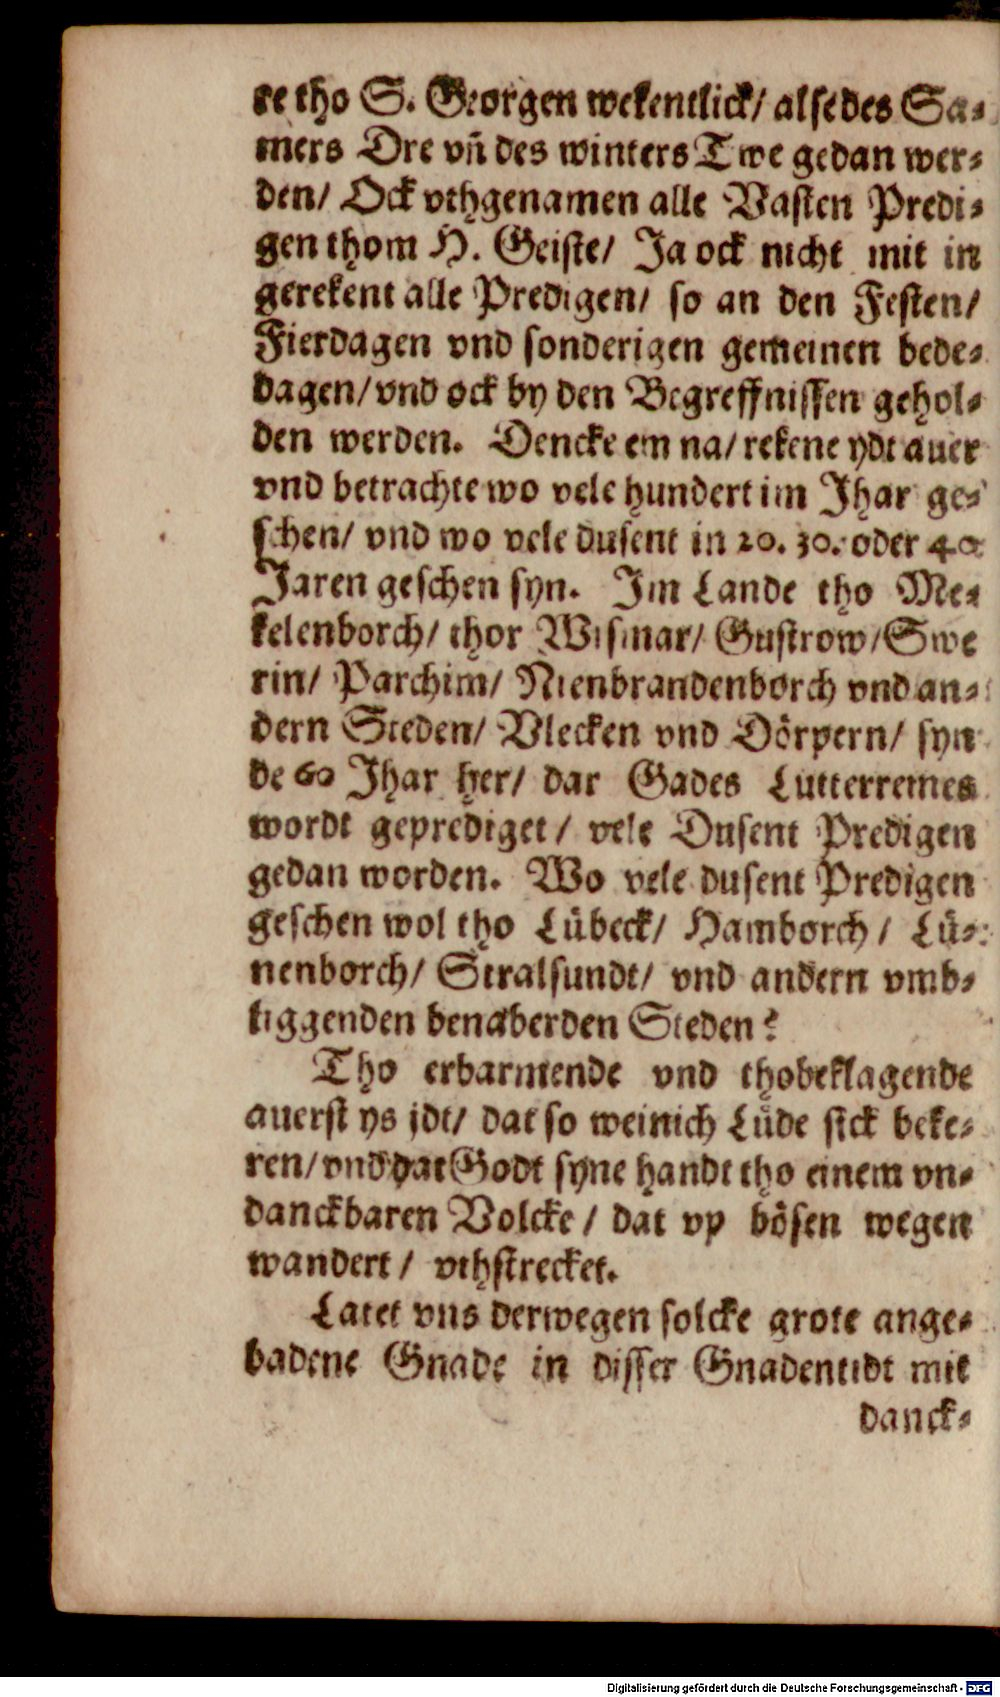 re tho S. Georgen wekentlick/ alse des Sa-
mers Dre vñ des winters Twe gedan wer-
den/ Ock vthgenamen alle Vasten Predi-
gen thom H. Geiste/ Ja ock nicht mit in
gerekent alle Predigen/ so an den Festen/
Fierdagen vnd sonderigen gemeinen bede-
dagen/ vnd ock by den Begreffnissen gehol-
den werden. Dencke em na/ rekene ydt auer
vnd betrachte wo vele hundert im Jhar ge-
schen/ vnd wo vele dusent in 20. 30. oder 40
Jaren geschen syn. Im Lande tho Me-
kelenborch/ thor Wismar/ Gustrow/ Swe
rin/ Parchim/ Nienbrandenborch vnd an-
dern Steden/ Vlecken vnd Dörpern/ syn
de 60 Jhar her/ dar Gades Lutterreines
wordt geprediget/ vele Dusent Predigen
gedan worden. Wo vele dusent Predigen
geschen wol tho Lübeck/ Hamborch/ Lü-
nenborch/ Stralsundt/ vnd andern vmb-
liggenden benaberden Steden?
Tho erbarmende vnd thobeklagende
auerst ys jdt/ dat so weinich Lüde sick beke-
ren/ vnd dat Godt syne handt tho einem vn-
danckbaren Volcke/ dat vp bösen wegen
wandert/ vthstrecket.
Latet vns derwegen solcke grote ange-
badene Gnade in disser Gnadentidt mit
danck-
Digitalisierung gefördert durch die Deutsche Forschungsgemeinschaft - DFG